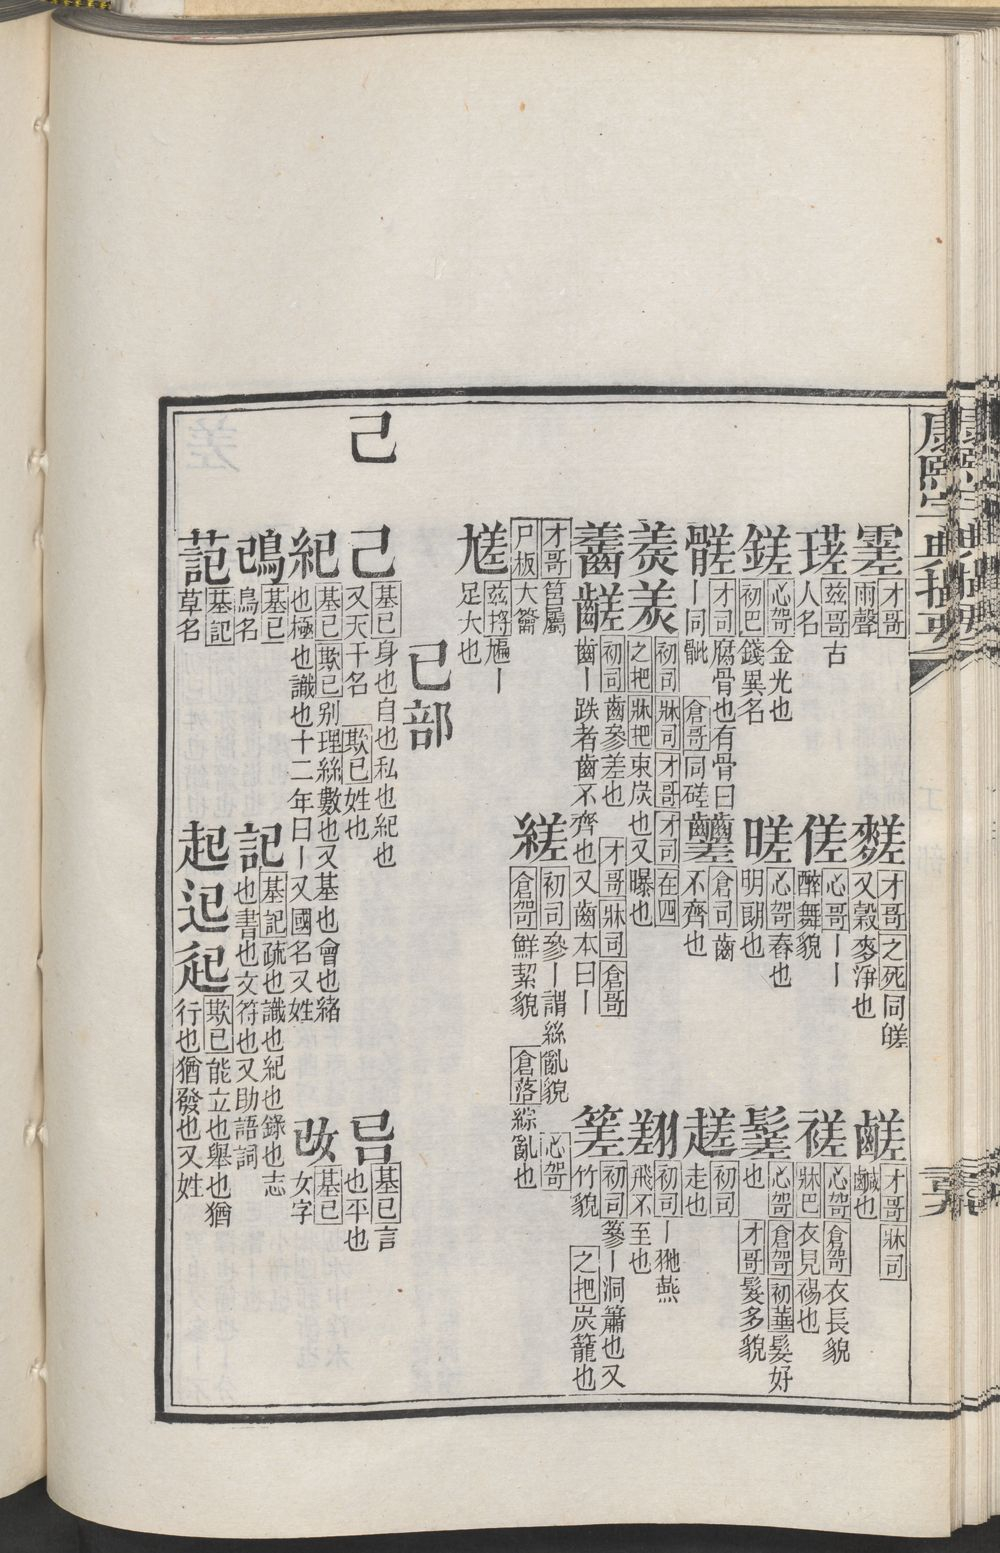 康熙字典撮要
䨏 才哥 雨聲
䴾 才哥 之死 同䁟又穀麥淨也
鹺 才哥 牀司 鹹也
瑳 兹哥 古人名
傞 心哥 丨丨醉舞貌
褨 心哿 倉哿 衣長貌 牀巴 衣見裼也
鎈 心哿 金光也 初巴 錢異名
嵯 心哿 舂也明朗也
髊 才司 腐骨也有骨曰丨同骴 倉哥 同磋
齹 倉司 齒不齊也
趖 初司 走也
初司 牀司 才哥 才司 在四 之把 牀把 束炭也又㬥也
初司 丨狏燕飛不至也
初司 齒參差也 才哥 牀司 倉哥 齒丨跌者齒不齊也又齒本曰丨
初司 篸丨洞簫也又竹貌 之把 炭籠也
才哥 筥屬 戸板 大籥
縒 初司 參丨謂絲亂貌 心哿 倉哿 鮮絜貌 倉落 綜亂也
兹捋 丨足大也
己部
己
己 基已 身也自也私也紀也又天干名 欺已 姓也
基已 言也平也
紀 基已 欺已 别理絲數也又基也會也緒也極也識也十二年曰丨又國名又姓
改 基已 女字
基已 鳥名
記 基記 疏也識也紀也錄也志也書也文符也又助語詞
基記 草名
起 欺已 能立也舉也猶行也猶發也又姓